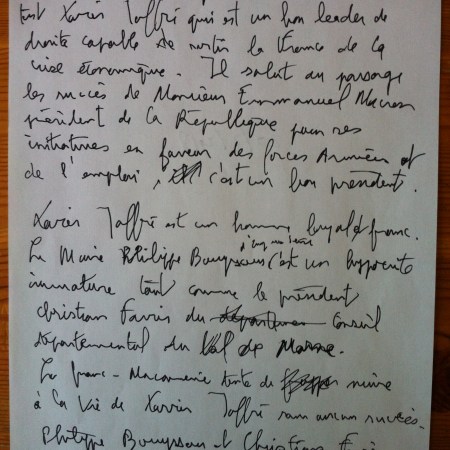 tient Xavier Joffré qui est un bon leader de
droite capable de sortir la France de la
crise économique. Il salut au passage
les succès de Monsieur Emmanuel Macron
président de la République pour ses
initiatives en faveur des forces Armées et
de l'emploi, c'est un bon président.
Xavier Joffré est un homme loyal et franc.
Le Maire Philippe Bouyssou c'est un hypocrite
immature tout comme le président
Christian Favris du Conseil
départemental du Val de Marne.
La franc-Maçonnerie tente de nuire
à la Vie de Xavier Joffré sans aucun succès.
Philippe Bouyssou et Christian